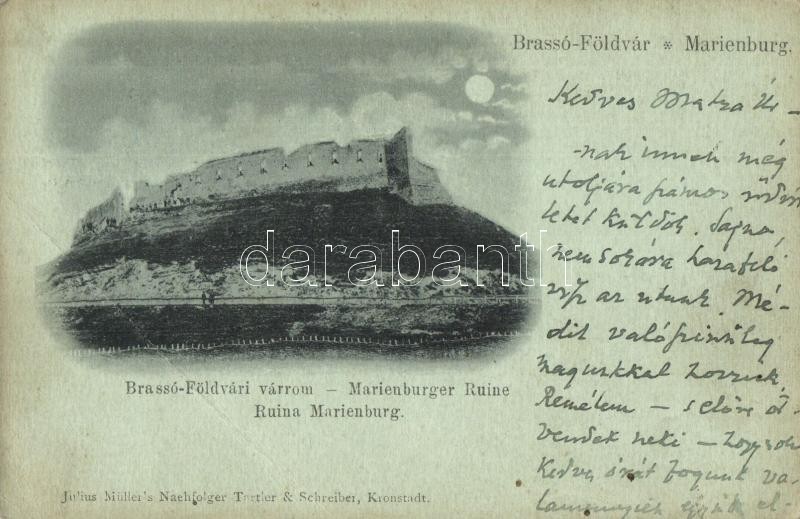 Brassó-Földvár * Marienburg.
Kedves Matza Úr-
-nak innen még
utoljára számos üdvöz
letet küldök. Sajnos,
nemsokára hazafelé
visz az utunk. Mé-
dit valószinüleg
magunkkal hozzuk.
Remélem – előre ö
vendek neki – hogy sok
Kedves órát fogunk va-
lamennyien együtt el-
darabanth.com
Brassó-Földvári várrom — Marienburger Ruine
Ruina Marienburg.
Julius Müller's Nachfolger Tartler & Schreiber, Kronstadt.